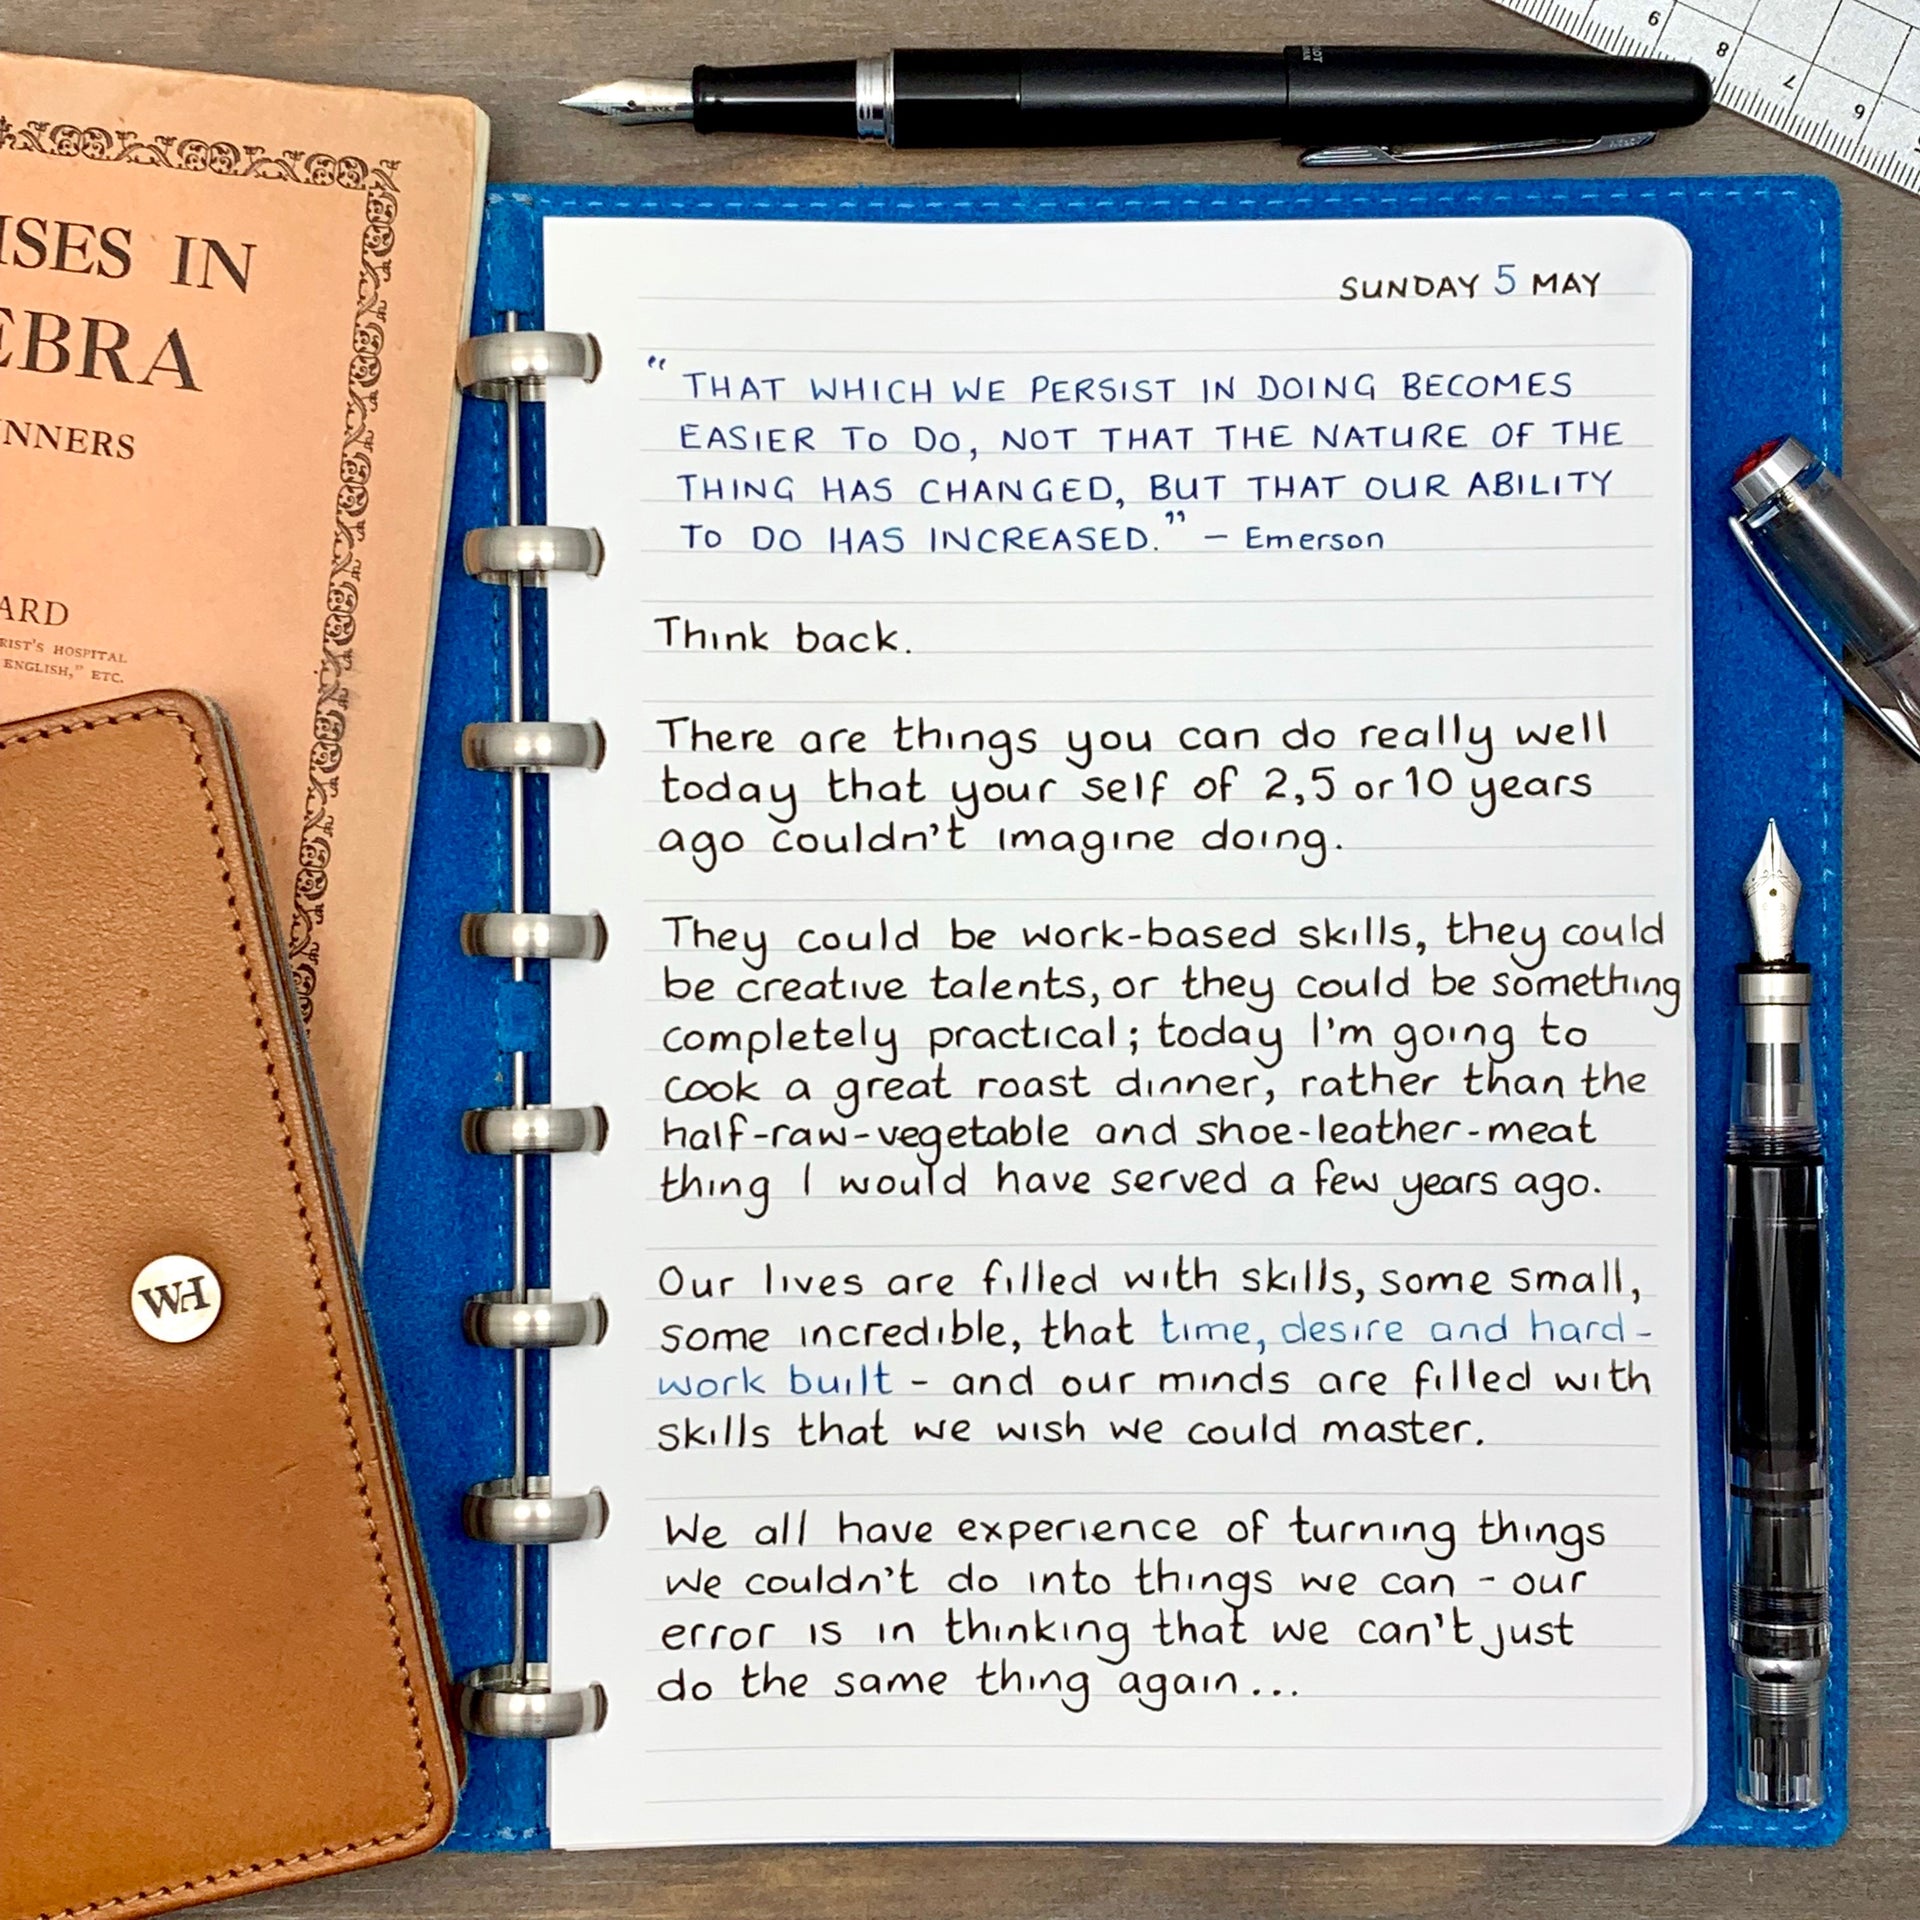 ISES IN
EBRA
INNERS
ARD
RIST'S HOSPITAL
ENGLISH," ETC.
WH
9
8
7
6
SUNDAY 5 MAY
"THAT WHICH WE PERSIST IN DOING BECOMES
EASIER TO DO, NOT THAT THE NATURE OF THE
THING HAS CHANGED, BUT THAT OUR ABILITY
TO DO HAS INCREASED." – Emerson
Think back.
There are things you can do really well
today that your self of 2,5 or 10 years
ago couldn't imagine doing.
They could be work-based skills, they could
be creative talents, or they could be something
completely practical; today I'm going to
cook a great roast dinner, rather than the
half-raw-vegetable and shoe-leather-meat
thing I would have served a few years ago.
Our lives are filled with skills, some small,
some incredible, that time, desire and hard-
work built - and our minds are filled with
skills that we wish we could master.
We all have experience of turning things
we couldn't do into things we can - our
error is in thinking that we can't just
do the same thing again...